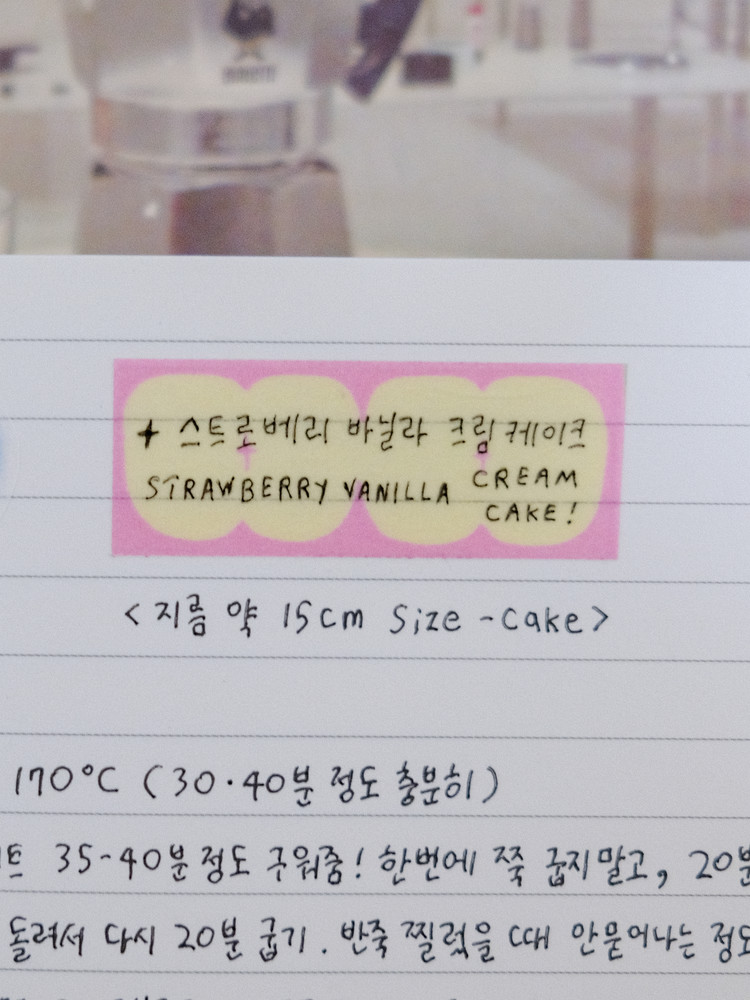 + 스트로베리 바닐라 크림 케이크
STRAWBERRY VANILLA CREAM
CAKE!
<지름 약 15cm Size - Cake>
170°C (30·40분 정도 충분히)
트 35-40분 정도 구워줌! 한번에 쭉 굽지말고, 20분
돌려서 다시 20분 굽기. 반죽 찔렀을 때 안묻어나는 정도